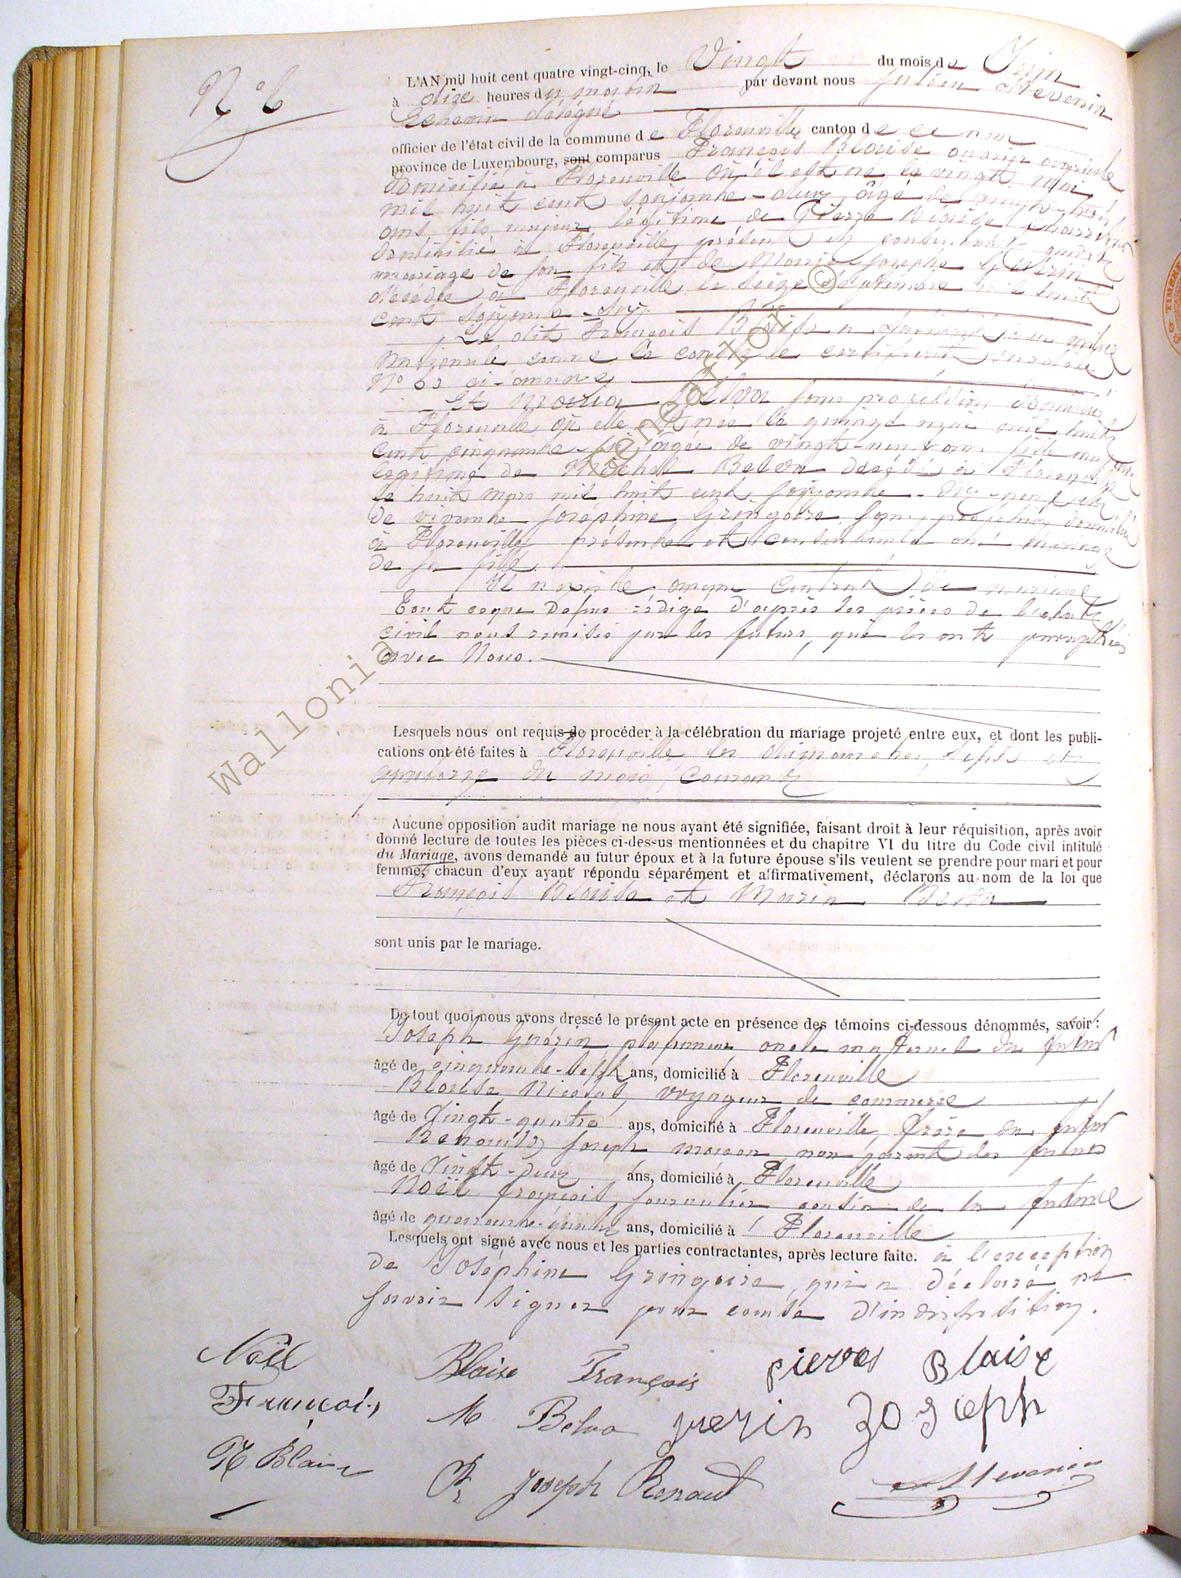 N° 6
L'AN mil huit cent quatre vingt-cinq, le Vingt du mois de Juin
à dix heures du matin par devant nous Julien Stevenin
Echevin délégué
officier de l'état civil de la commune de Florenville canton de ce nom
province de Luxembourg, sont comparus François Blaise
domicilié à Florenville où il est né le vingt mai
mil huit cent soixante-deux, âgé de vingt-trois
ans, fils majeur légitime de Pierre Blaise
domicilié à Florenville, présent et consentant au
mariage de son fils et de Marie Josèphe Guérin
décédée à Florenville le seize Septembre mil huit
cent soixante-dix
Le dit François Blaise a
nationale comme le constate le certificat modèle
N° ci-annexé
Et Maria Belva sans profession domiciliée
à Florenville où elle est née le quinze mil huit
cent cinquante- âgée de vingt-neuf ans fille majeure
légitime de Michel Belva décédé à Florenville
le huit mars mil huit cent soixante-dix-neuf et
de vivante Joséphine Gringoire sans profession domiciliée
à Florenville présente et consentante au mariage
de sa fille.
Il n'existe aucun Contrat de mariage
Tout ce que Dessus rédigé d'après les pièces de l'état
civil nous remises par les futurs, qui les ont paraphées
avec Nous.
Lesquels nous ont requis de procéder à la célébration du mariage projeté entre eux, et dont les publi-
cations ont été faites à Florenville les dimanches, sept et
quatorze du mois Courant
Aucune opposition audit mariage ne nous ayant été signifiée, faisant droit à leur réquisition, après avoir
donné lecture de toutes les pièces ci-dessus mentionnées et du chapitre VI du titre du Code civil intitulé
du Mariage, avons demandé au futur époux et à la future épouse s'ils veulent se prendre pour mari et pour
femme; chacun d'eux ayant répondu séparément et affirmativement, déclarons au nom de la loi que
François Blaise et Maria Belva
sont unis par le mariage.
De tout quoi nous avons dressé le présent acte en présence des témoins ci-dessous dénommés, savoir:
Joseph Guérin plafonneur oncle maternel du futur
âgé de cinquante-sept ans, domicilié à Florenville
Blaise, Nicolas, voyageur de commerce
âgé de Vingt-quatre ans, domicilié à Florenville, frère du futur
Renauld, Joseph maçon, non parent des futurs
âgé de Vingt-deux ans, domicilié à Florenville
Noël François, journalier cousin de la future
âgé de quarante- ans, domicilié à Florenville
Lesquels ont signé avec nous et les parties contractantes, après lecture faite. à l'exception
de Joséphine Gringoire, qui a déclaré ne
savoir signer pour cause d'indisposition.
Noël Blaise François pierres Blaise
François M Belva guerin Joseph
N Blaise Joseph Renaud Stevenin
Wallonia ©